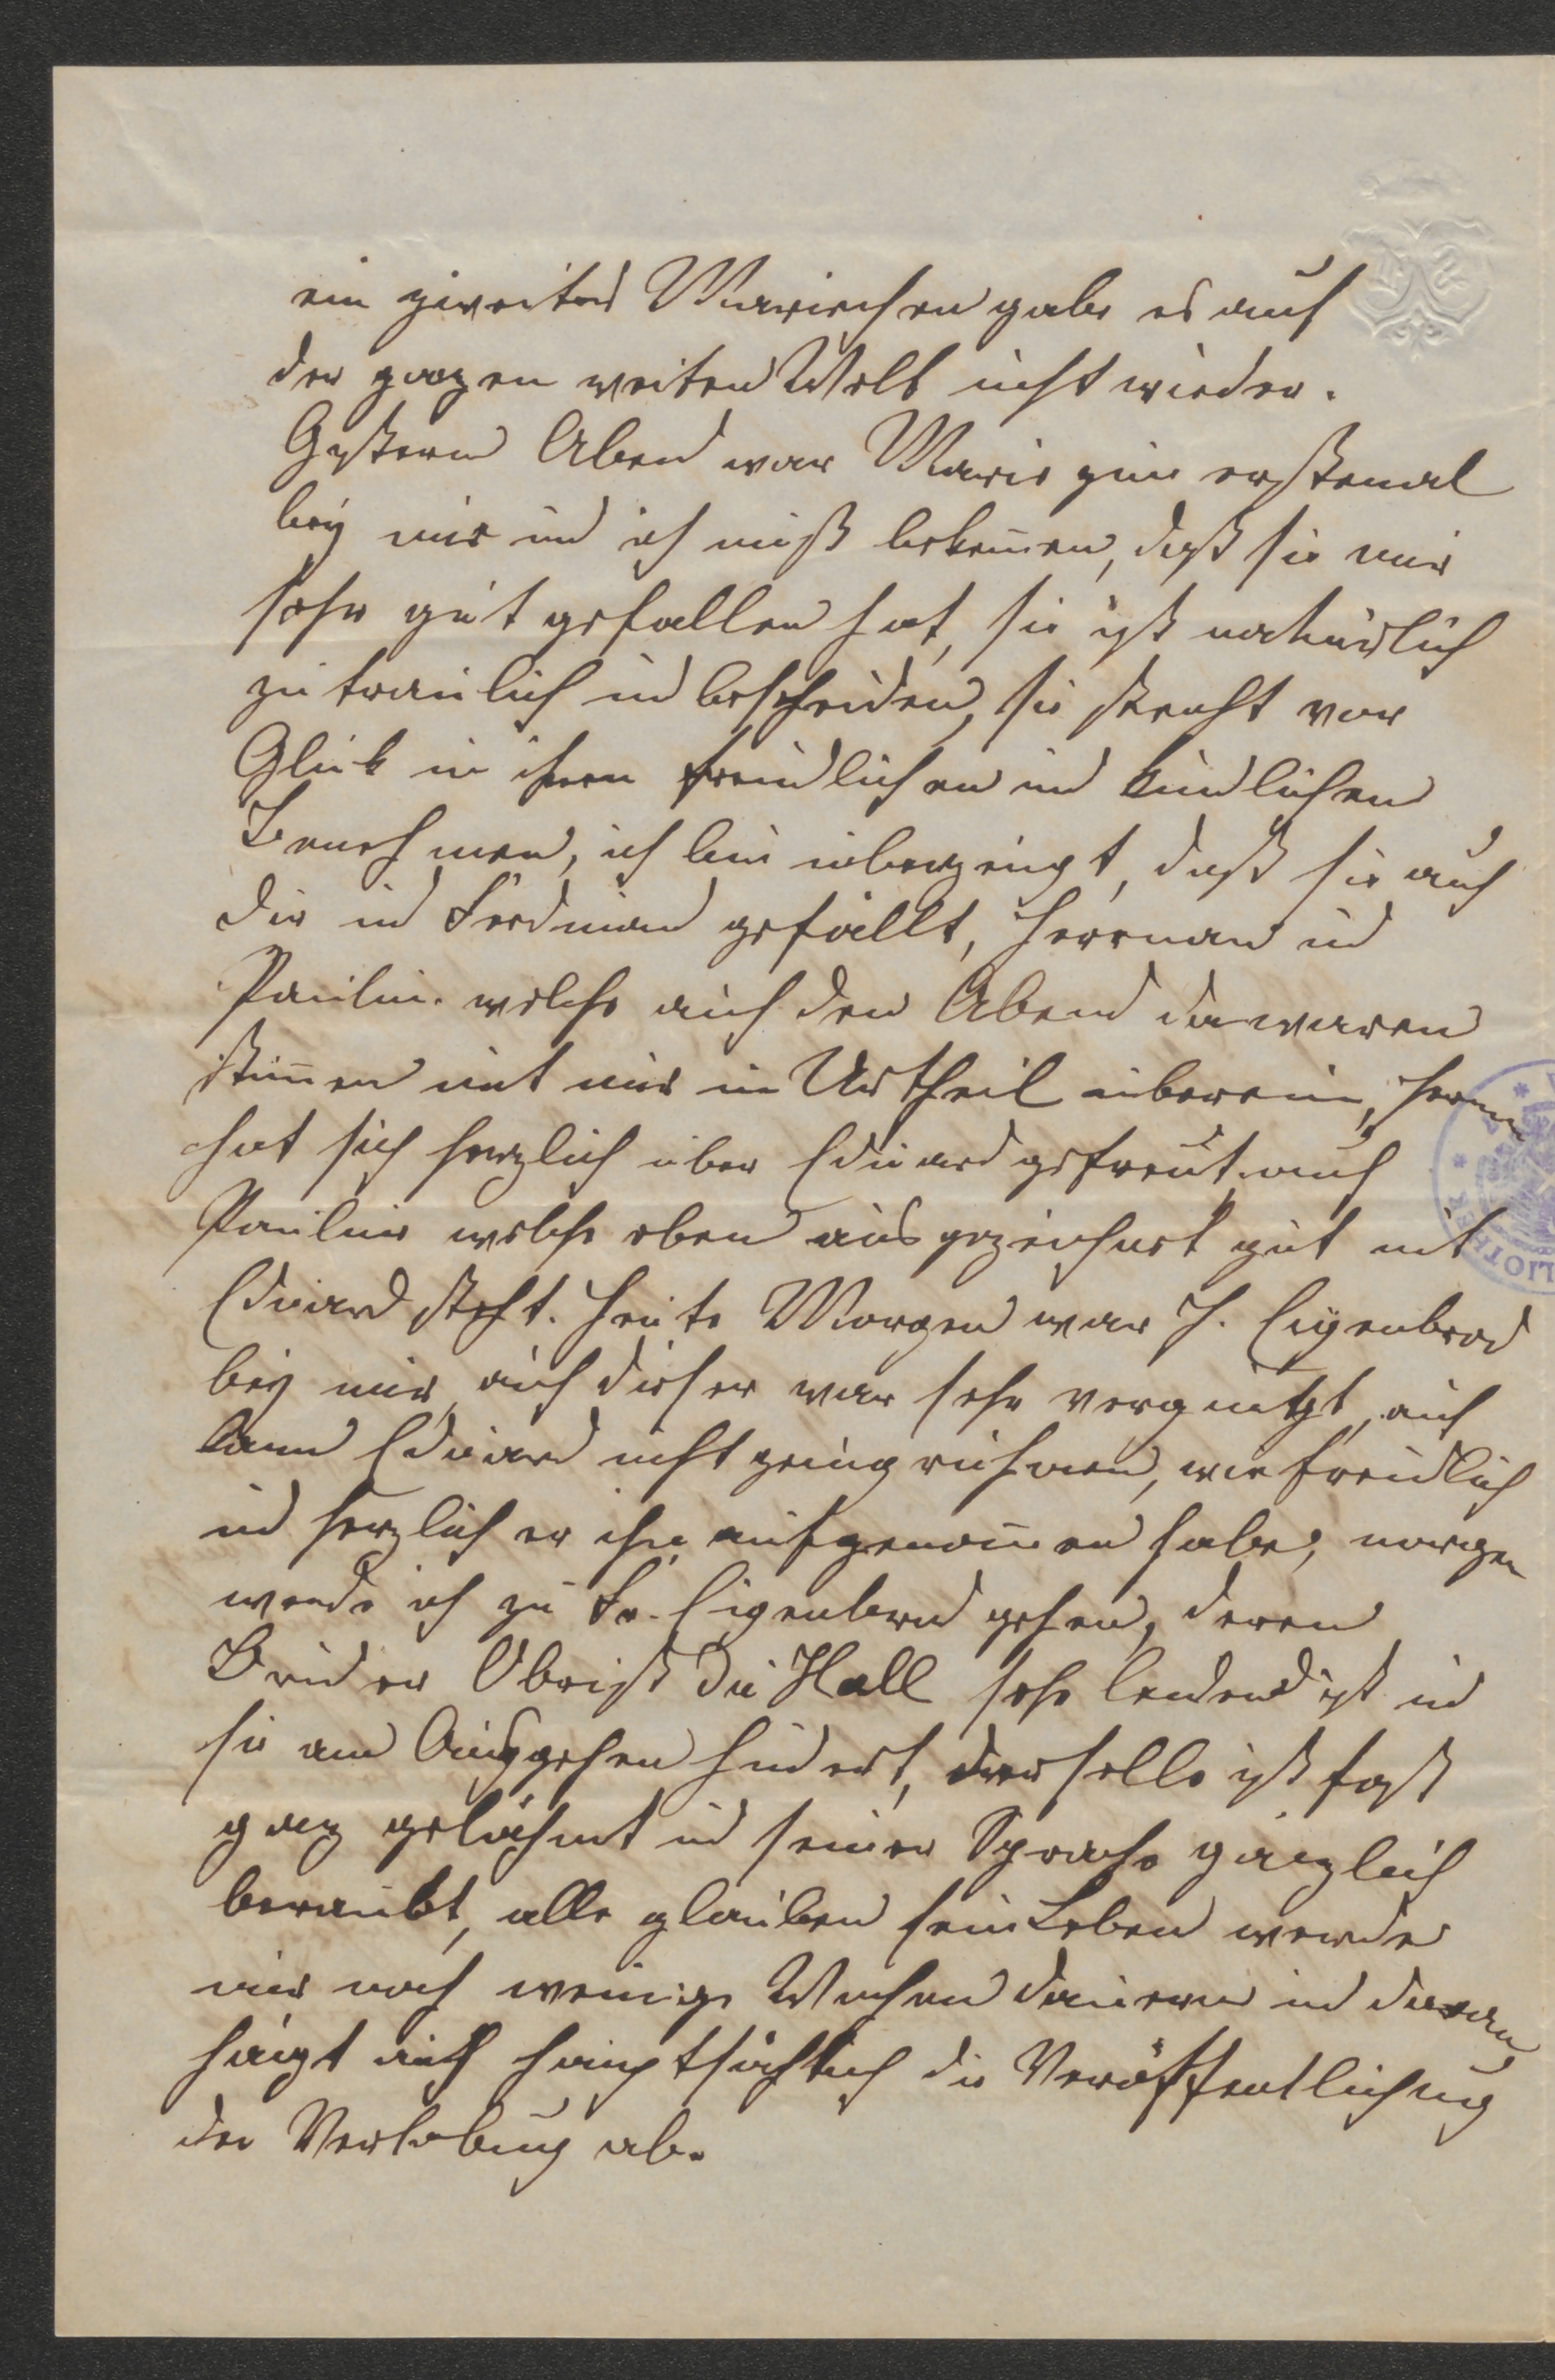 ein zweites Mariechen gebe es auf
der ganzen weiten Welt nicht wieder.
Gestern Abend war Marie zum erstenmal
bey mir und ich muß bekennen, daß sie mir
sehr gut gefallen hat, sie ist natürlich
zutraulich und bescheiden, sie strahlt vor
Glück in ihrem freundlichen und kindlichen
Benehmen, ich bin überzeugt, daß sie auch
dir und Ferdinand gefällt, Herrman und
Pauline welche auch den Abend da waren
stimmen mit mir im Urtheil überein, Herrman
hat sich herzlich über Eduard gefreut auch
Pauline welche eben ausgezeichnet gut mit
Eduard steht. Heute Morgen war H. Eigenbrod
bey mir, auch dieser war sehr vergnügt, auch
kann Eduard nicht genug rühmen, wie freundlich
und herzlich er ihn aufgenommen habe, morgen
werde ich zu Fr. Eigenbrod gehen, deren
Bruder Obrist du Hall sehr leidend ist und
sie am Ausgehen hindert, derselbe ist fast
ganz gelähmt und seiner Sprache gänzlich
beraubt, alle glauben sein Leben werde
nur noch wenige Wochen dauern und daran
hängt auch hauptsächlich die Veröffentlichung
der Verlobung ab.